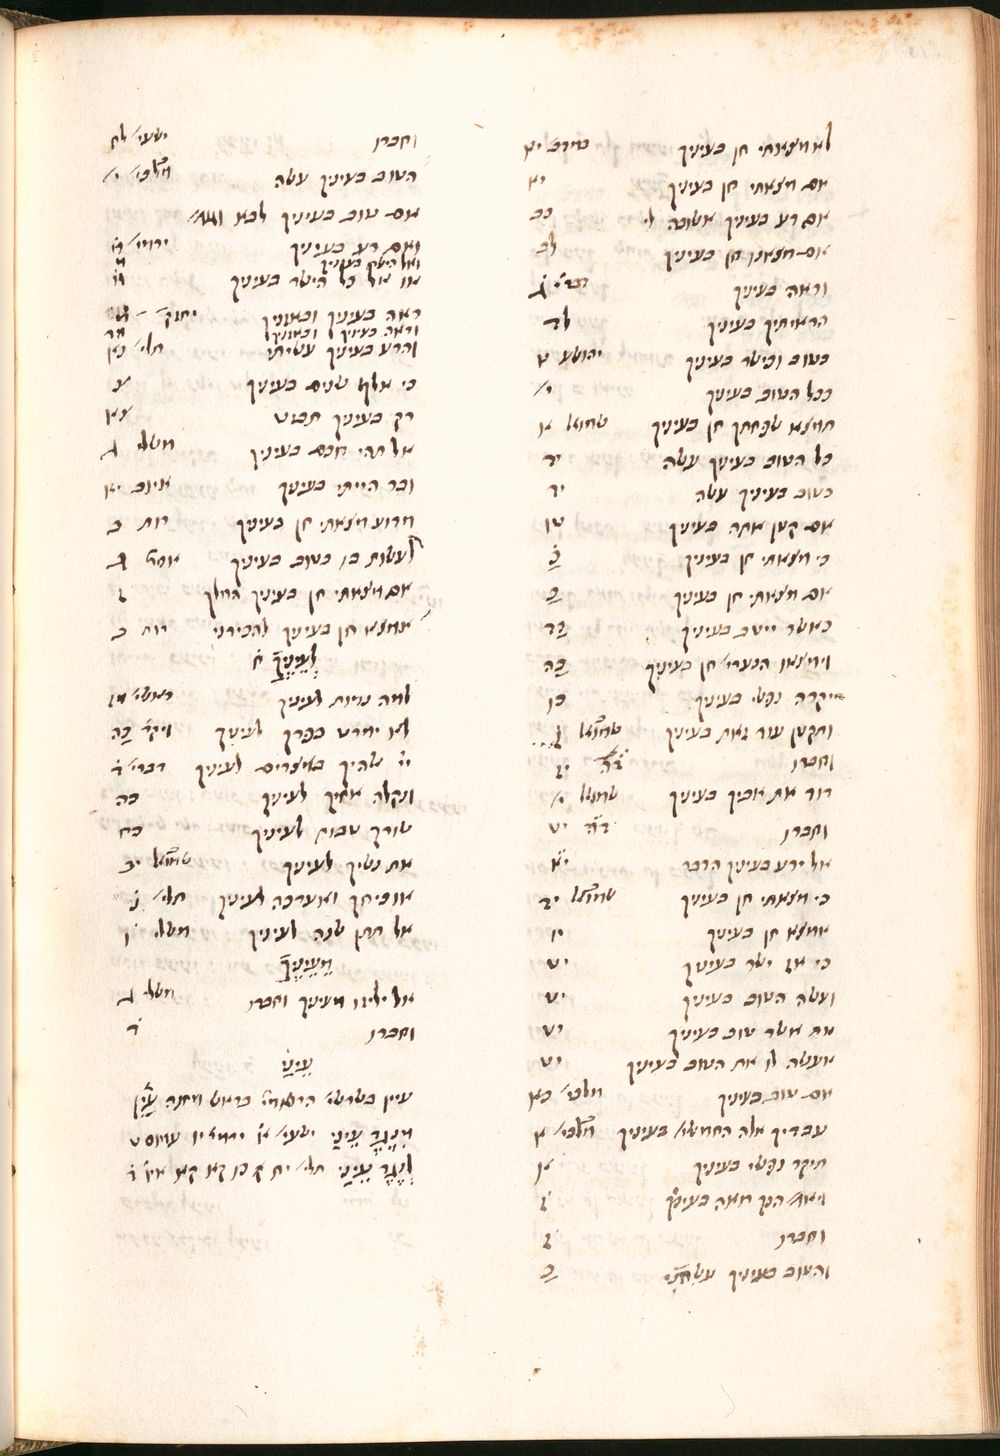 לא מצאתי חן בעיניך במדב׳ יא
אם מצאתי חן בעיניך יא
אם רע בעיניך אשובה לי כב
אם מצאנו חן בעיניך לב
וראה בעיניך דברי׳ ג
הראיתיך בעיניך לד
כטוב וכישר בעיניך יהושע ט
ככל הטוב בעיניך י׳
תמצא שפחתך חן בעיניך שמואל א
כל הטוב בעיניך עשה יד
הטוב בעיניך עשה יד
אם קטן אתה בעיניך טו
כי מצאתי חן בעיניך כ
אם מצאתי חן בעיניך כ
כאשר ייטב בעיניך כד
וימצאו הנערי׳ חן בעיניך כה
יקרה נפשי בעיניך כו
ותקטן עוד זאת בעיניך שמואל ז
וחברו ד״ה יז
דוד את אביך בעיניך שמואל י׳
וחברו ד״ה יט
אל ירע בעיניך הדבר יא
כי מצאתי חן בעיניך שמואל יד
אמצא חן בעיניך יו
כי אז ישר בעיניך יט
ועשה הטוב בעיניך יט
את אשר טוב בעיניך יט
אעשה לו את הטוב בעיניך יט
אם טוב בעיניך מלכי׳ כא
עבדיך אלה החמשי׳ בעיניך מלכי׳ א
תיקר נפשי בעיניך א
ויאמ׳ הנך ראה בעיניך ז
וחברו ז
והטוב בעיניך עשיתי כ
וחברו ישעי׳ לח
הטוב בעיניך עשה מלכי׳ י׳
אם טוב בעיניך לבא
ואם רע בעיניך ירמי׳ מ
ואל הישר בעיניך מ
או אל כל הישר בעיניך מ
ראה בעיניך ובאזניך יחזק׳ מ
וראה בעיניך ובאזניך מד
והרע בעיניך עשיתי תלי׳ נא
כי אלף שנים בעיניך צ
רק בעיניך תביט צא
אל תהי חכם בעיניך משלי ג
ובר הייתי בעיניך איוב יא
מדוע מצאתי חן בעיניך רות ב
לעשות בו כטוב בעיניך אסת׳ ג
אם מצאתי חן בעיניך המלך ז
אמצא חן בעיניך להכירני רות ב
לְעֵינֶיךָ ח
למה נמות לעיניך ראשי׳ מז
לא ירדנו בפרך לעיניך ויקר׳ כה
יי׳ אלהיך במצרים לעיניך דברי׳ ד
ונקלה אחיך לעיניך כה
שורך טבוח לעיניך כח
את נשיך לעיניך שמואל יב
אוכיחך ואערכה לעיניך תלי׳ נ
אל תתן שנה לעיניך משלי ו
מֵעֵינֶיךָ
אל ילוזו מעיניך וחברו משלי ג
וחברו ד
עֵינַי
עיין בשרשי׳ בראש מחנה עין
מִנֶּגֶד עֵינַי ישעי׳ א ירמי׳ יו עמוס ט
לְנֶגֶד עֵינַי תלי׳ יח כו קא קא איוב ד